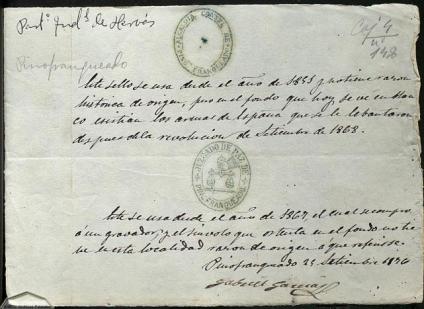 Part.º Jud.l de Hervás
Caj. 4
nº
148
Pinofranqueado
ALCALDIA CONSTL. DE
PINO FRANQUEADO
Este sello se usa desde el año de 1855 y no tiene razon
historica de origen, pues en el fondo que hoy se ve en blan
co existian las armas de España que se le lebantaron
despues de la revolucion de Setiembre de 1868.
JUZGADO DE PAZ DE
PINO FRANQUEADO
Este se usa desde el año de 1867, el cual se compro
á un gravador, y el simbolo que ostenta en el fondo no
tiene en esta localidad razon de origen a que referirse.
Pinofranqueado 25 Setiembre 1876
Garcia